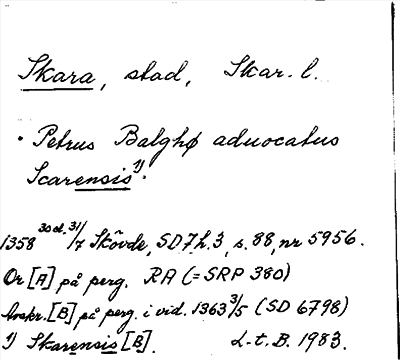 Skara, stad, Skar. l.
· Petrus Balghø aduocatus
Scarensis¹⁾.
1358 31/7 Skövde, SD7 h. 3, s. 88, nr 5956.
Or [A] på perg. RA (= SRP 380)
Avskr. [B] på perg. i vid. 1363 3/5 (SD 6798)
1) Skarensis [B]. L-t. B. 1983.